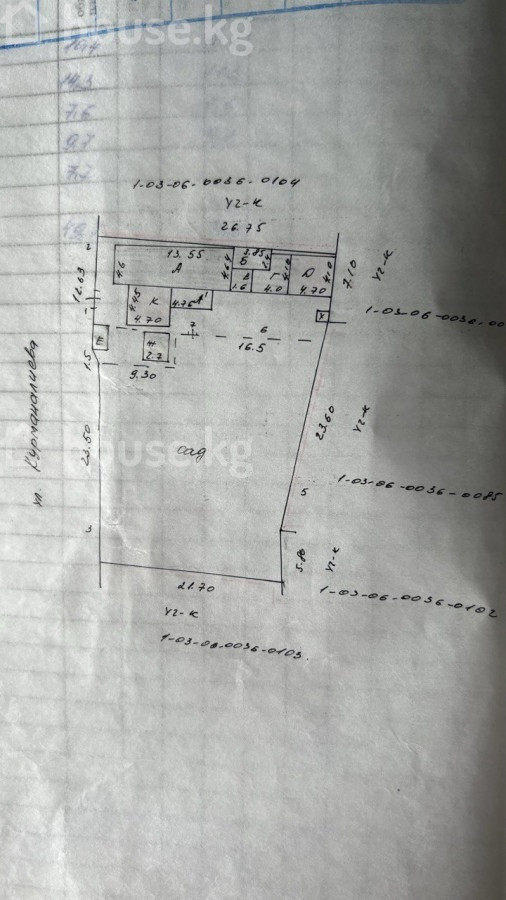 house.kg
10.4
14.3
7.6
9.7
7.7
1-03-06-0036-0104
уч-к
26.75
2
13.55
А
4.6
4.64
3.85
Б
В
1.6
Г
4.0
4.10
Д
4.70
4.10
7.10
уч-к
12.63
4.45
К
4.70
4.75
А'
У
1-03-06-0036-00
7
6
16.5
П
Н
2.7
1.5
9.30
ул. Курманалиева
23.50
сад
house.kg
23.60
уч-к
1-03-06-0036-0085
5
3
5.80
уч-к
1-03-06-0036-0102
21.70
уч-к
1-03-06-0036-0103.
house.kg